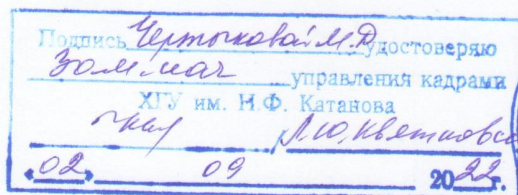 Подпись Чертыковой М.Д. удостоверяю
Зам. нач. управления кадрами
ХГУ им. Н.Ф. Катанова
«02» 09 2022г.